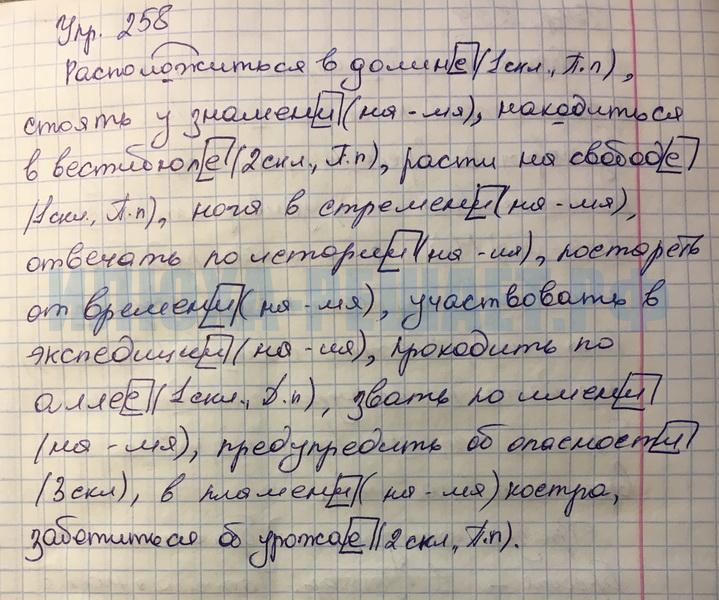 Упр. 258
Расположиться в долине (1скл., П.п),
стоять у знамени (на -мя), находиться
в вестибюле (2скл., П.п), расти на свободе
(1скл., П.п), нога в стремени (на -мя),
отвечать по истории (на -ия), постареть
от времени (на -мя), участвовать в
экспедиции (на -ия), проходить по
аллее (1скл., Д.п), звать по имени
(на -мя), предупредить об опасности
(3скл), в пламени (на -мя) костра,
заботиться об урожае (2скл., П.п).